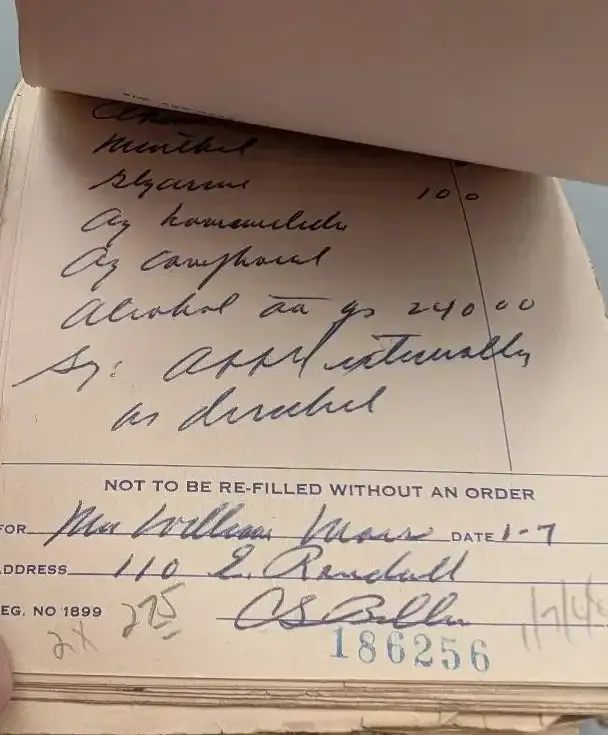 Menthol
Glycerine 10 0
Aq hamamelidis
Aq camphorae
Alcohol āā qs 240 00
Sig: Apply externally
as directed
NOT TO BE RE-FILLED WITHOUT AN ORDER
FOR Mrs William DATE 1-7
ADDRESS 110 E. Randall
REG. NO 1899 275
2x
186256